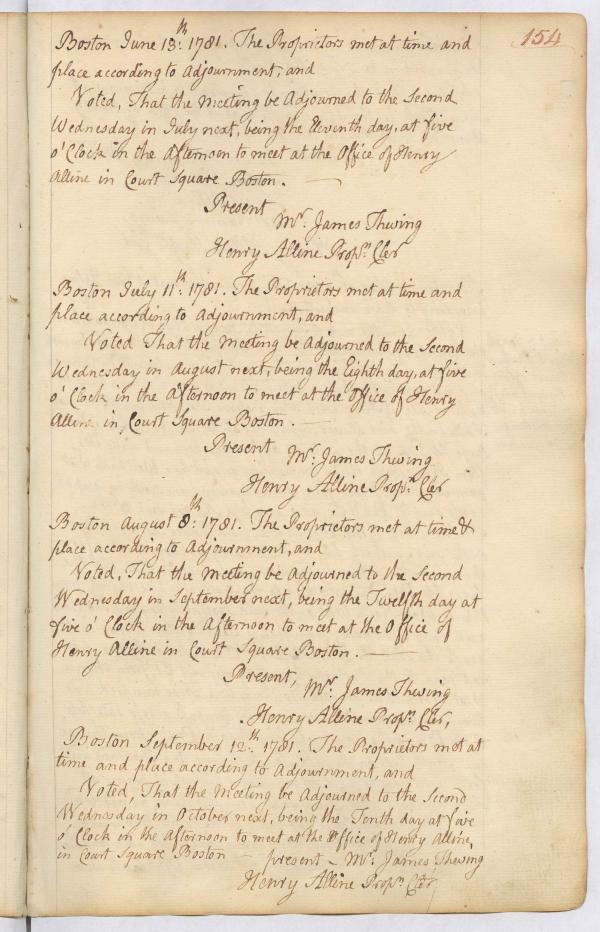 154
Boston June 13th: 1781. The Proprietors met at time and
place according to Adjournment, and
Voted, That the Meeting be Adjourned to the Second
Wednesday in July next, being the Eleventh day, at five
o' Clock in the Afternoon to meet at the Office of Henry
Alline in Court Square Boston.
Present
Mr. James Thwing
Henry Alline Propr. Cler
Boston July 11th: 1781. The Proprietors met at time and
place according to Adjournment, and
Voted That the Meeting be Adjourned to the Second
Wednesday in August next, being the Eighth day, at five
o' Clock in the Afternoon to meet at the Office of Henry
Alline in Court Square Boston.
Present
Mr. James Thwing
Henry Alline Propr. Cler
Boston August 8th: 1781. The Proprietors met at time &
place according to Adjournment, and
Voted, That the Meeting be Adjourned to the Second
Wednesday in September next, being the Twelfth day at
five o' Clock in the Afternoon to meet at the Office of
Henry Alline in Court Square Boston.
Present,
Mr. James Thwing
Henry Alline Propr. Cler,
Boston September 12th. 1781. The Proprietors met at
time and place according to Adjournment, and
Voted, That the Meeting be Adjourned to the Second
Wednesday in October next, being the Tenth day at five
o' Clock in the Afternoon to meet at the Office of Henry Alline,
in Court Square Boston – present – Mr. James Thwing
Henry Alline Propr. Cler